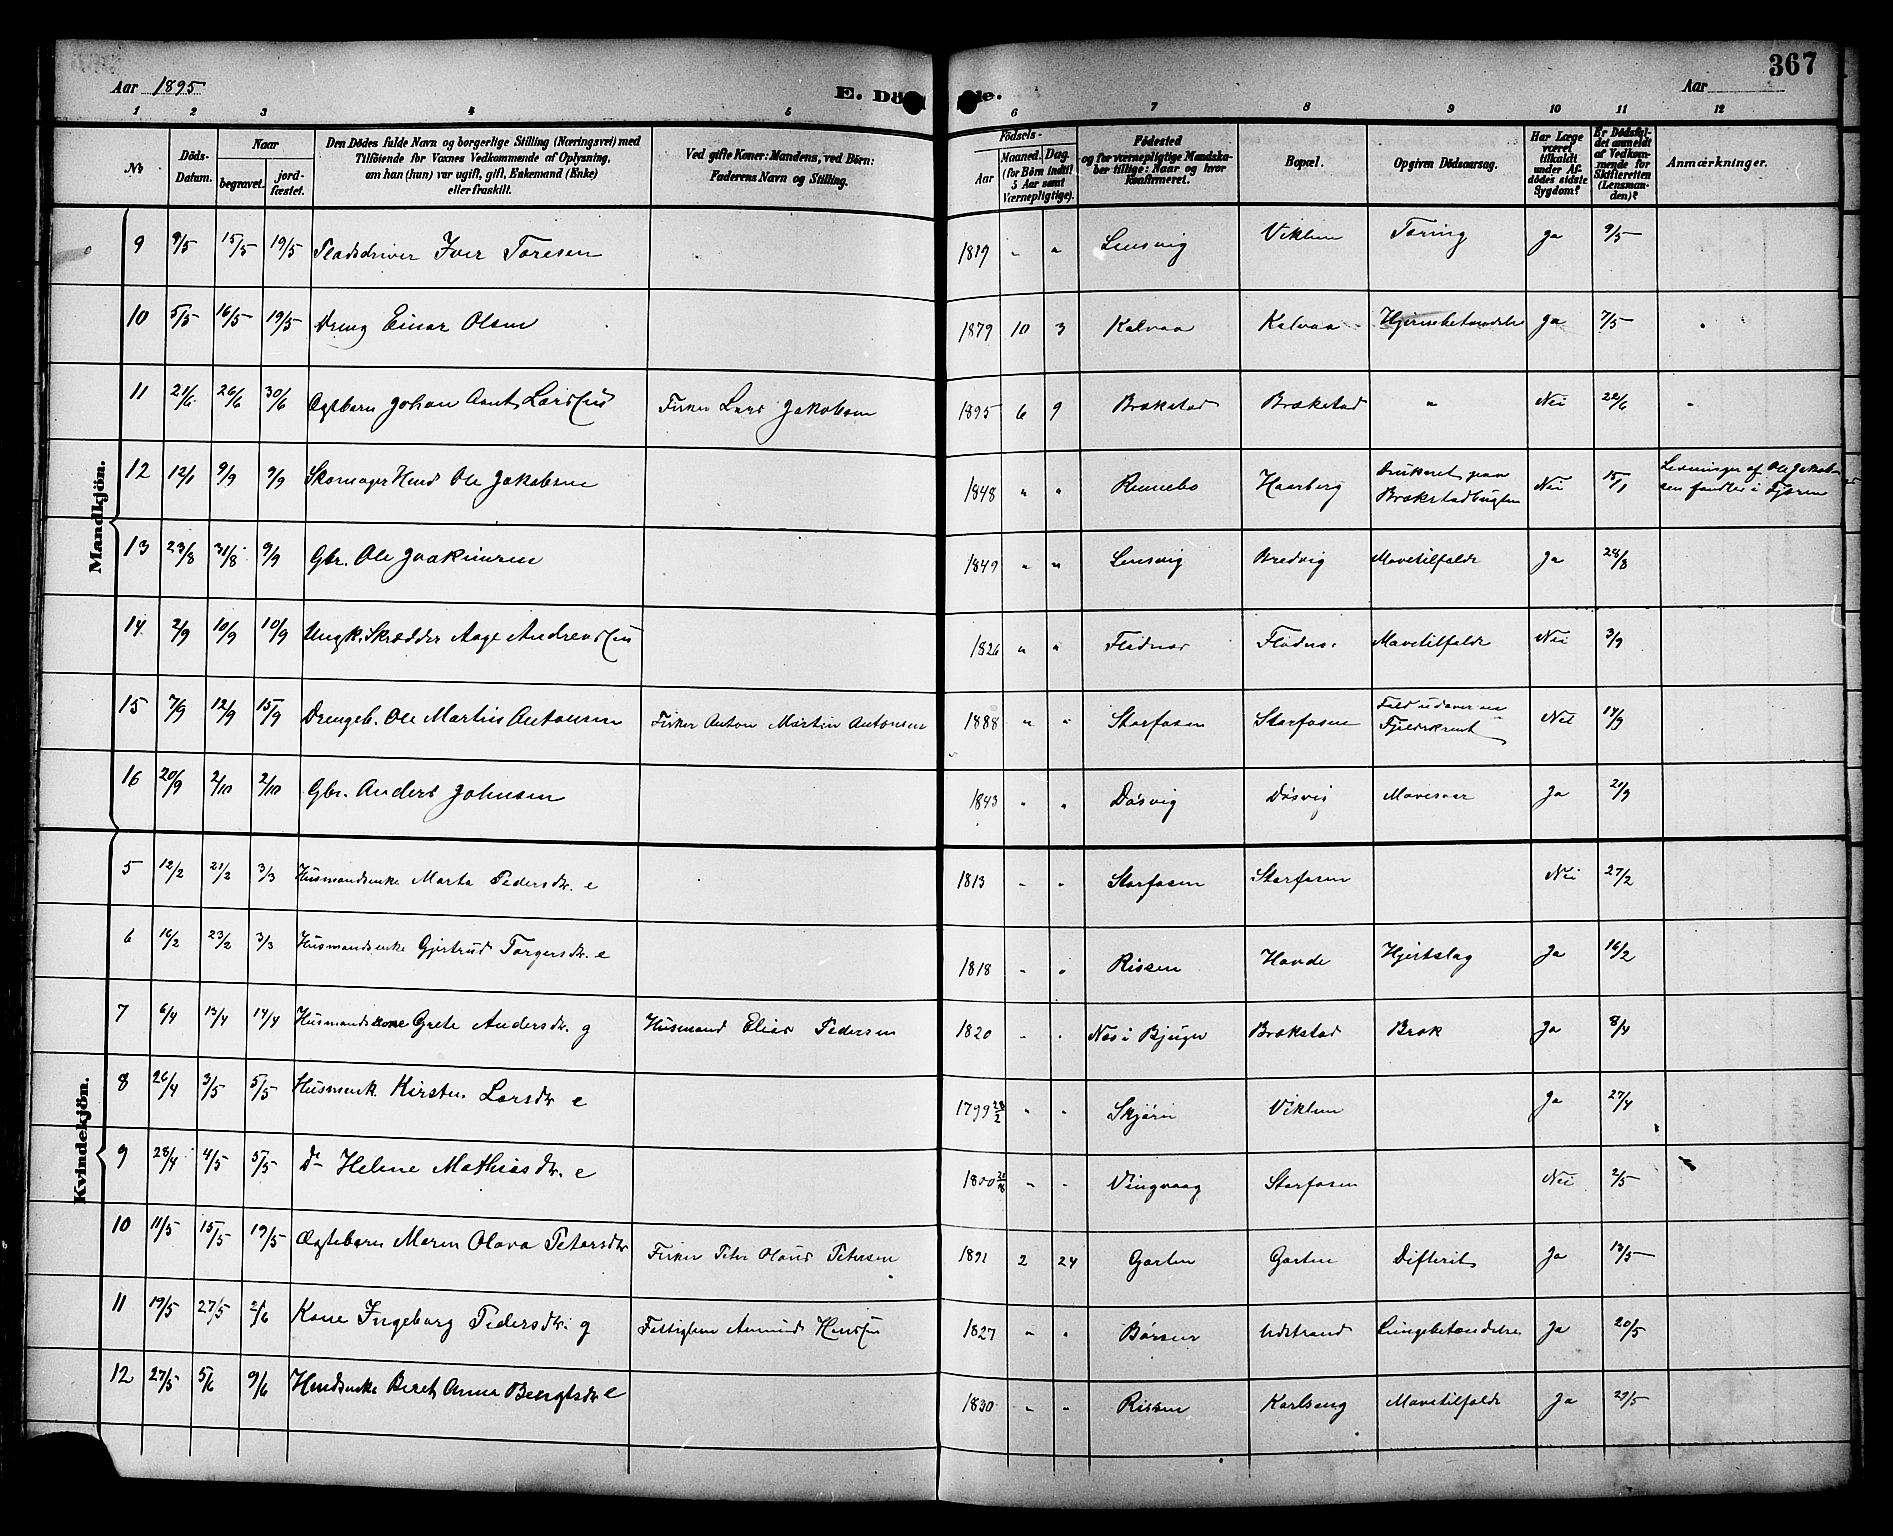 367
Aar 1895
E. Dö de.
Aar
1 2 3 4 5 6 7 8 9 10 11 12
No
Döds-Datum.
Naar
begravet.
jord-fæstet.
Den Dödes fulde Navn og borgerlige Stilling (Næringsvei) med
Tilföiende for Voxnes Vedkommende af Oplysning,
om han (hun) var ugift, gift, Enkemand (Enke)
eller fraskilt.
Ved gifte Koner: Mandens, ved Börn:
Faderens Navn og Stilling.
Födsels-
Aar
Maaned. Dag.
(for Börn indtil
5 Aar samt
Værnepligtige).
Födested
og for værnepligtige Mandska-
ber tillige: Naar og hvor
konfirmeret.
Bopæl.
Opgiven Dödsaarsag.
Har Læge
været
tilkaldt
under Af-
dödes sidste
Sygdom?
Er Dödsfal-
det anmeldt
af Vedkom-
mende for
Skifteretten
(Lensman-
den)?
Anmærkninger.
Mandkjön.
9 9/5 15/5 19/5 Pladsdriver Iver Toresen 1819 " " Lensvig Viklem Tæring Ja 9/5
10 5/5 16/5 19/5 Dreng Einar Olsen 1879 10 3 Kalvaa Kalvaa Hjernebetændelse Ja 7/5
11 21/6 26/6 30/6 Ægtebarn Johan Arnt Larssen Fisker Lars Jakobsen 1895 6 9 Brækstad Brækstad " Nei 22/6 "
12 12/1 9/9 9/9 Skomager Ole Jakobsen 1848 " " Rennebo Haarberg Druknet paa Brækstadbugten Nei 15/1 Levninger af Ole Jakobsen fandtes i Fjæren
13 23/8 31/8 9/9 Gbr. Ole Joakimsen 1849 " " Lensvig Bredvig Mavetilfælde Ja 28/8
14 2/9 10/9 10/9 Ungk. Skrædder Aage Andreassen 1826 " " Flødnes Flødnes Mavetilfælde Nei 3/9
15 7/9 12/9 15/9 Drengeb. Ole Martin Antonsen Fisker Anton Martin Antonsen 1888 " " Storfosen Storfosen Fald udover en Fjeldskrænt Nei 14/9
16 20/9 2/10 2/10 Gbr. Anders Johnsen 1843 " " Døsvig Døsvig Mavesaar Ja 21/9
Kvindekjön.
5 12/2 21/2 3/3 Husmandsenke Marta Pedersdtr. e 1813 " " Storfosen Storfosen Nei 27/2
6 16/2 23/2 3/3 Husmandsenke Gjertrud Torgersdtr. e 1818 " " Rissen Hovde Hjertslag Ja 16/2
7 6/4 13/4 14/4 Husmandskone Grete Andersdtr. g Husmand Elias Pedersen 1820 " " Næs i Bjugn Brækstad Brok Ja 8/4
8 26/4 3/5 5/5 Husmenk. Kirsten Larsdtr e 1799 28/2 " " Skjørn Viklem Ja 27/4
9 28/4 4/5 5/5 Do Helene Mathiasdtr. e 1800 " " Vingvaag Storfosen Nei 2/5
10 11/5 15/5 19/5 Ægtebarn Maren Olava Petersdtr Fisker Peter Olaus Petersen 1891 2 24 Garten Garten Difterit Ja 13/5
11 19/5 27/5 2/6 Kone Ingeborg Pedersdtr. g Fattiglem Amund Hanssen 1827 " " Børsen Udstrand Lungebetændelse Ja 20/5
12 27/5 5/6 9/6 Beret Anna Bengtsdtr e 1830 " " Rissen Karlseng Mavetilfælde Ja 29/5